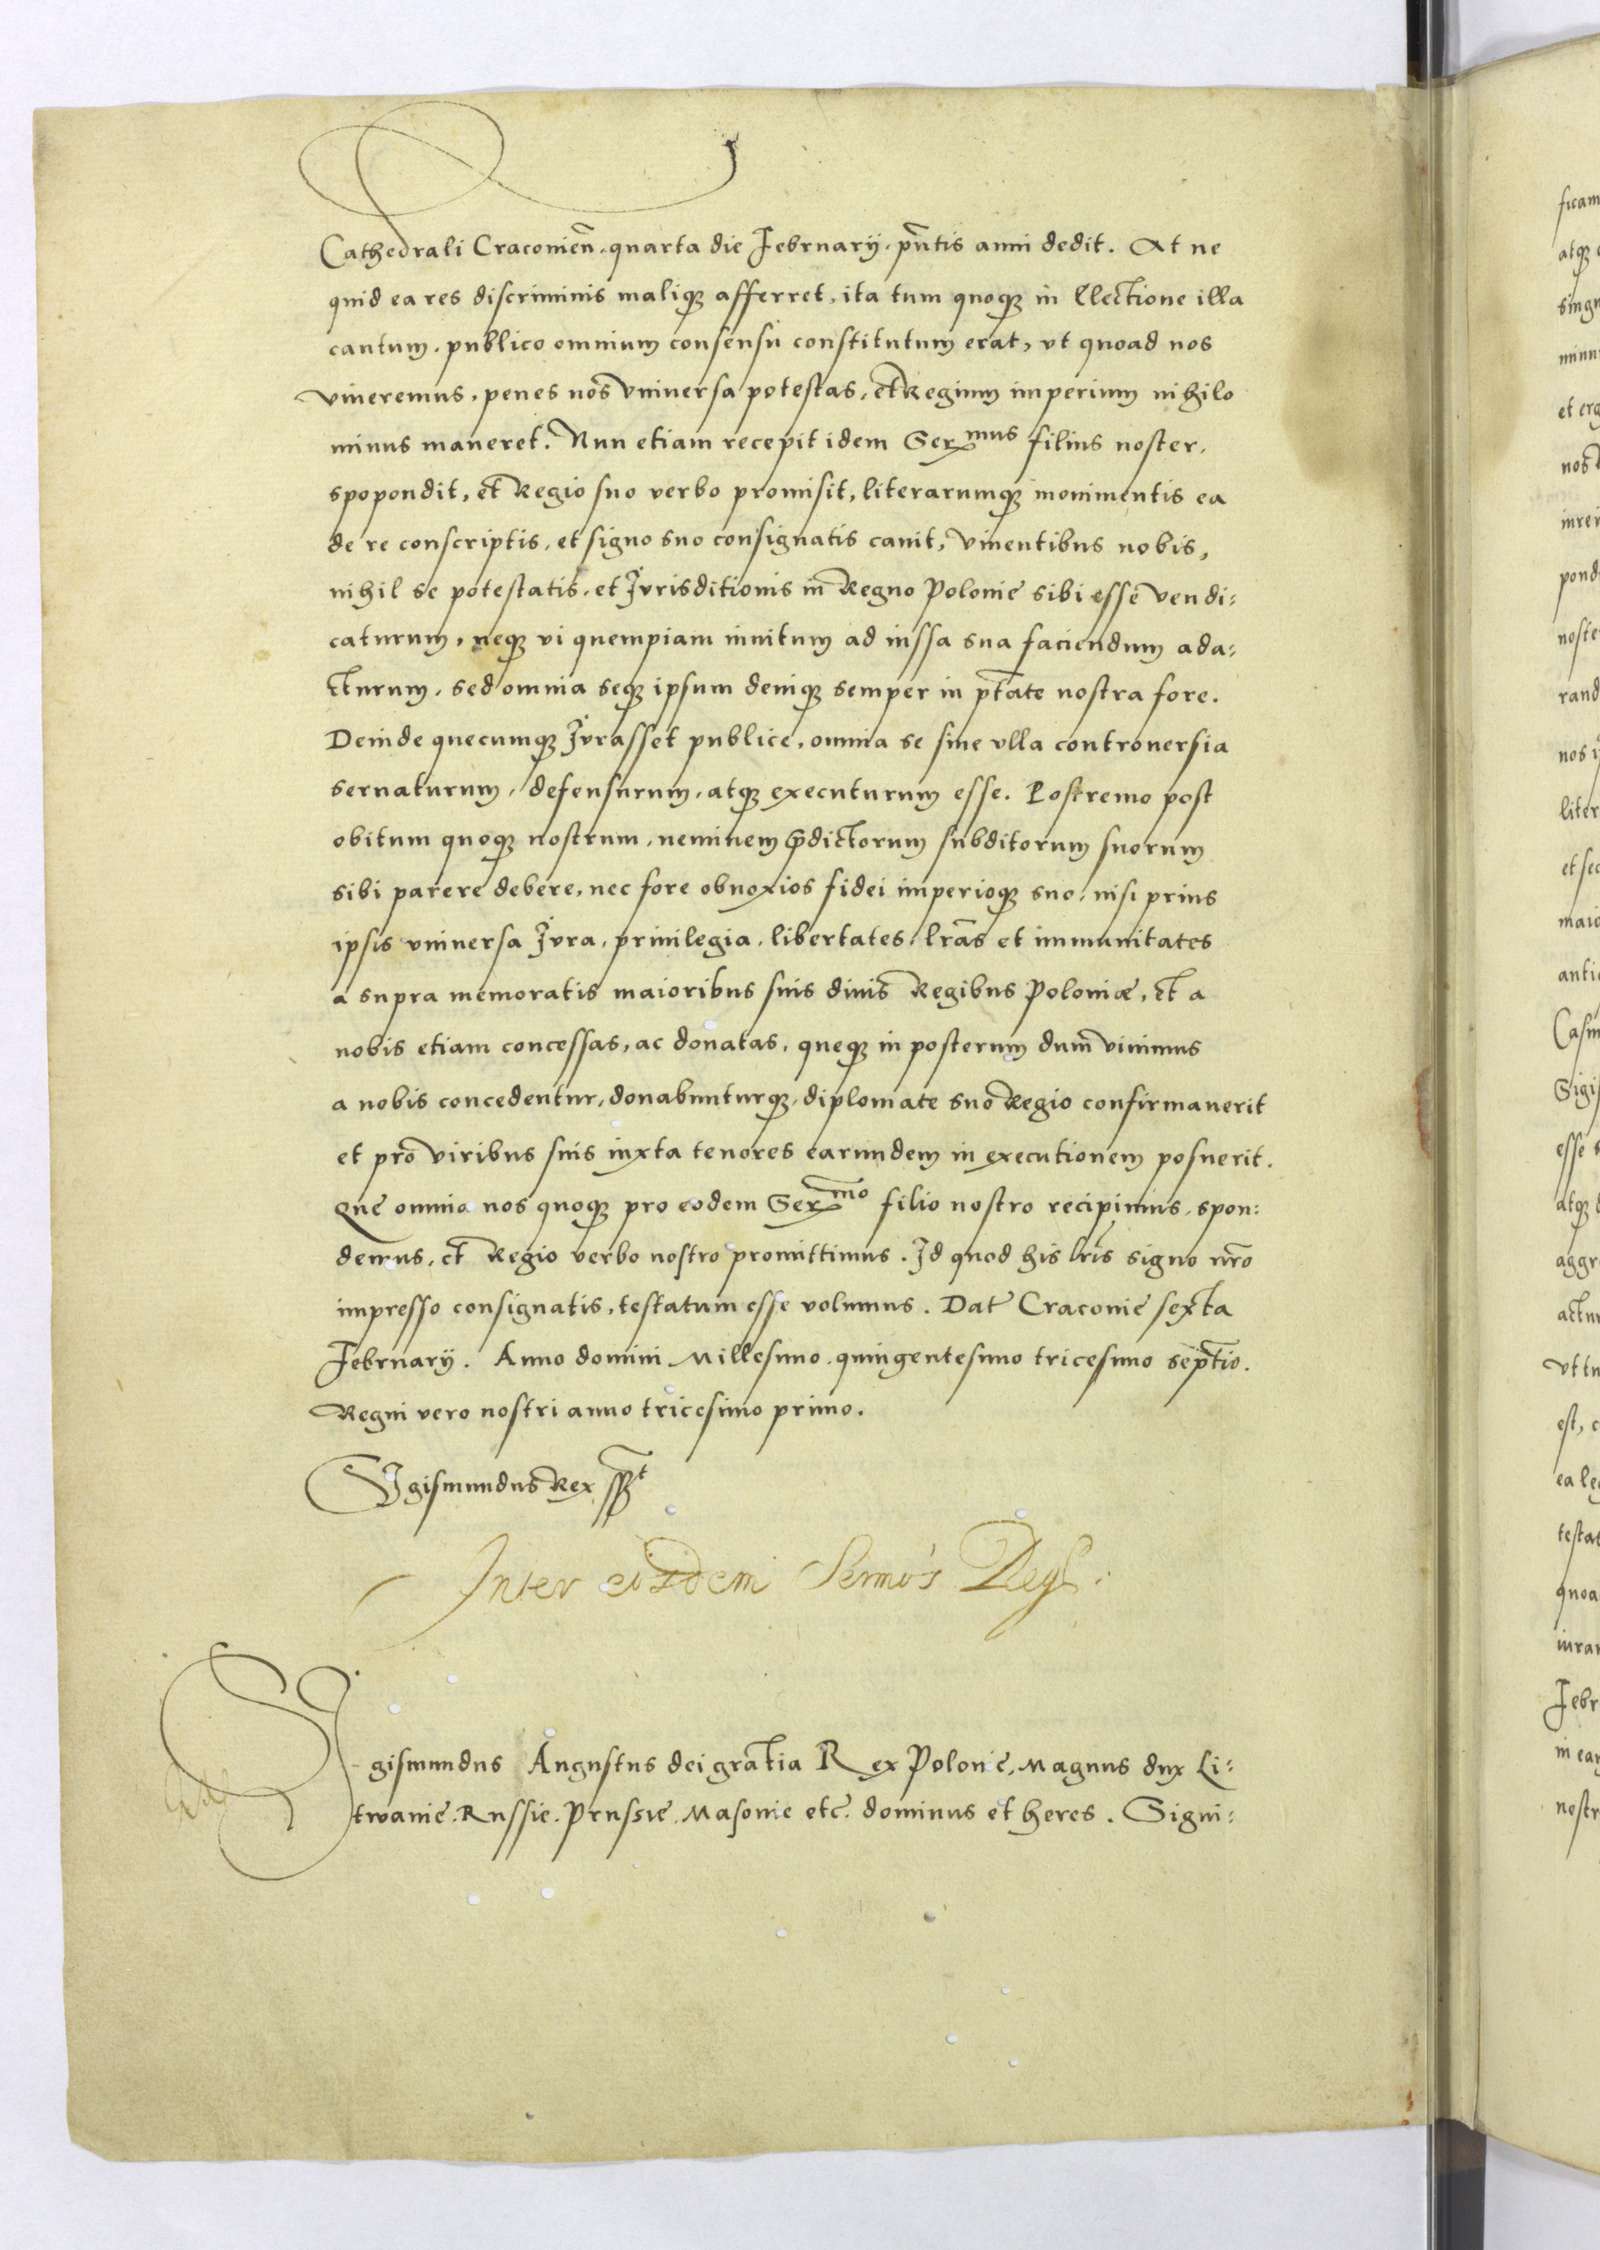 Cathedrali Craconien̄. quarta die Februarij. pn̄tis anni dedit. At ne
quid ea res discriminis maliqʒ afferret, ita tum quoqʒ in Electione illa
cautum. publico omnium consensu constitutum erat, vt quoad nos
viueremus, penes nos vniuersa potestas, et Regium imperium nihilo
minus maneret. Nun etiam recepit idem Serᵐᵘˢ filius noster,
spopondit, et Regio suo verbo promisit, literarumqʒ monimentis ea
de re conscriptis, et signo suo consignatis cauit, viuentibus nobis,
nihil se potestatis, et Jvrisditionis in Regno Polonie sibi esse vendi:
caturum, neqʒ vi quempiam inuitum ad iussa sua faciendum ada:
cturum, sed omnia seqʒ ipsum deniqʒ semper in ptāte nostra fore.
Deinde quecumqʒ Jvrasset publice, omnia se sine vlla controuersia
seruaturum, defensurum, atqʒ executurum esse. Postremo post
obitum quoqʒ nostrum, neminem p̄dictorum subditorum suorum
sibi parere debere, nec fore obnoxios fidei imperioqʒ suo, nisi prius
ipsis vniuersa Jvra, priuilegia, libertates, lrās et immunitates
a supra memoratis maioribus suis diuis Regibus Poloniæ, et a
nobis etiam concessas, ac donatas, queqʒ in posterum dum viuimus
a nobis concedentur, donabunturqʒ, diplomate suo Regio confirmauerit
et pro viribus suis iuxta tenores earumdem in executionem posuerit.
Que omnia nos quoqʒ pro eodem Serᵐᵒ filio nostro recipimus, spon:
demus, et Regio verbo nostro promittimus. Id quod his lrīs signo nrō
impresso consignatis, testatum esse volumus. Dat Craconie sexta
Februarij. Anno domini Millesimo quingentesimo tricesimo septīo.
Regni vero nostri anno tricesimo primo.
Sigismundus Rex sspᵗ
Inter eiusdem Sermi's Regs.
Sigismundus Augustus dei gratia Rex Polonie, Magnus dux Li:
twanie. Russie. Prussie. Masouie etc. dominus et heres. Signi: